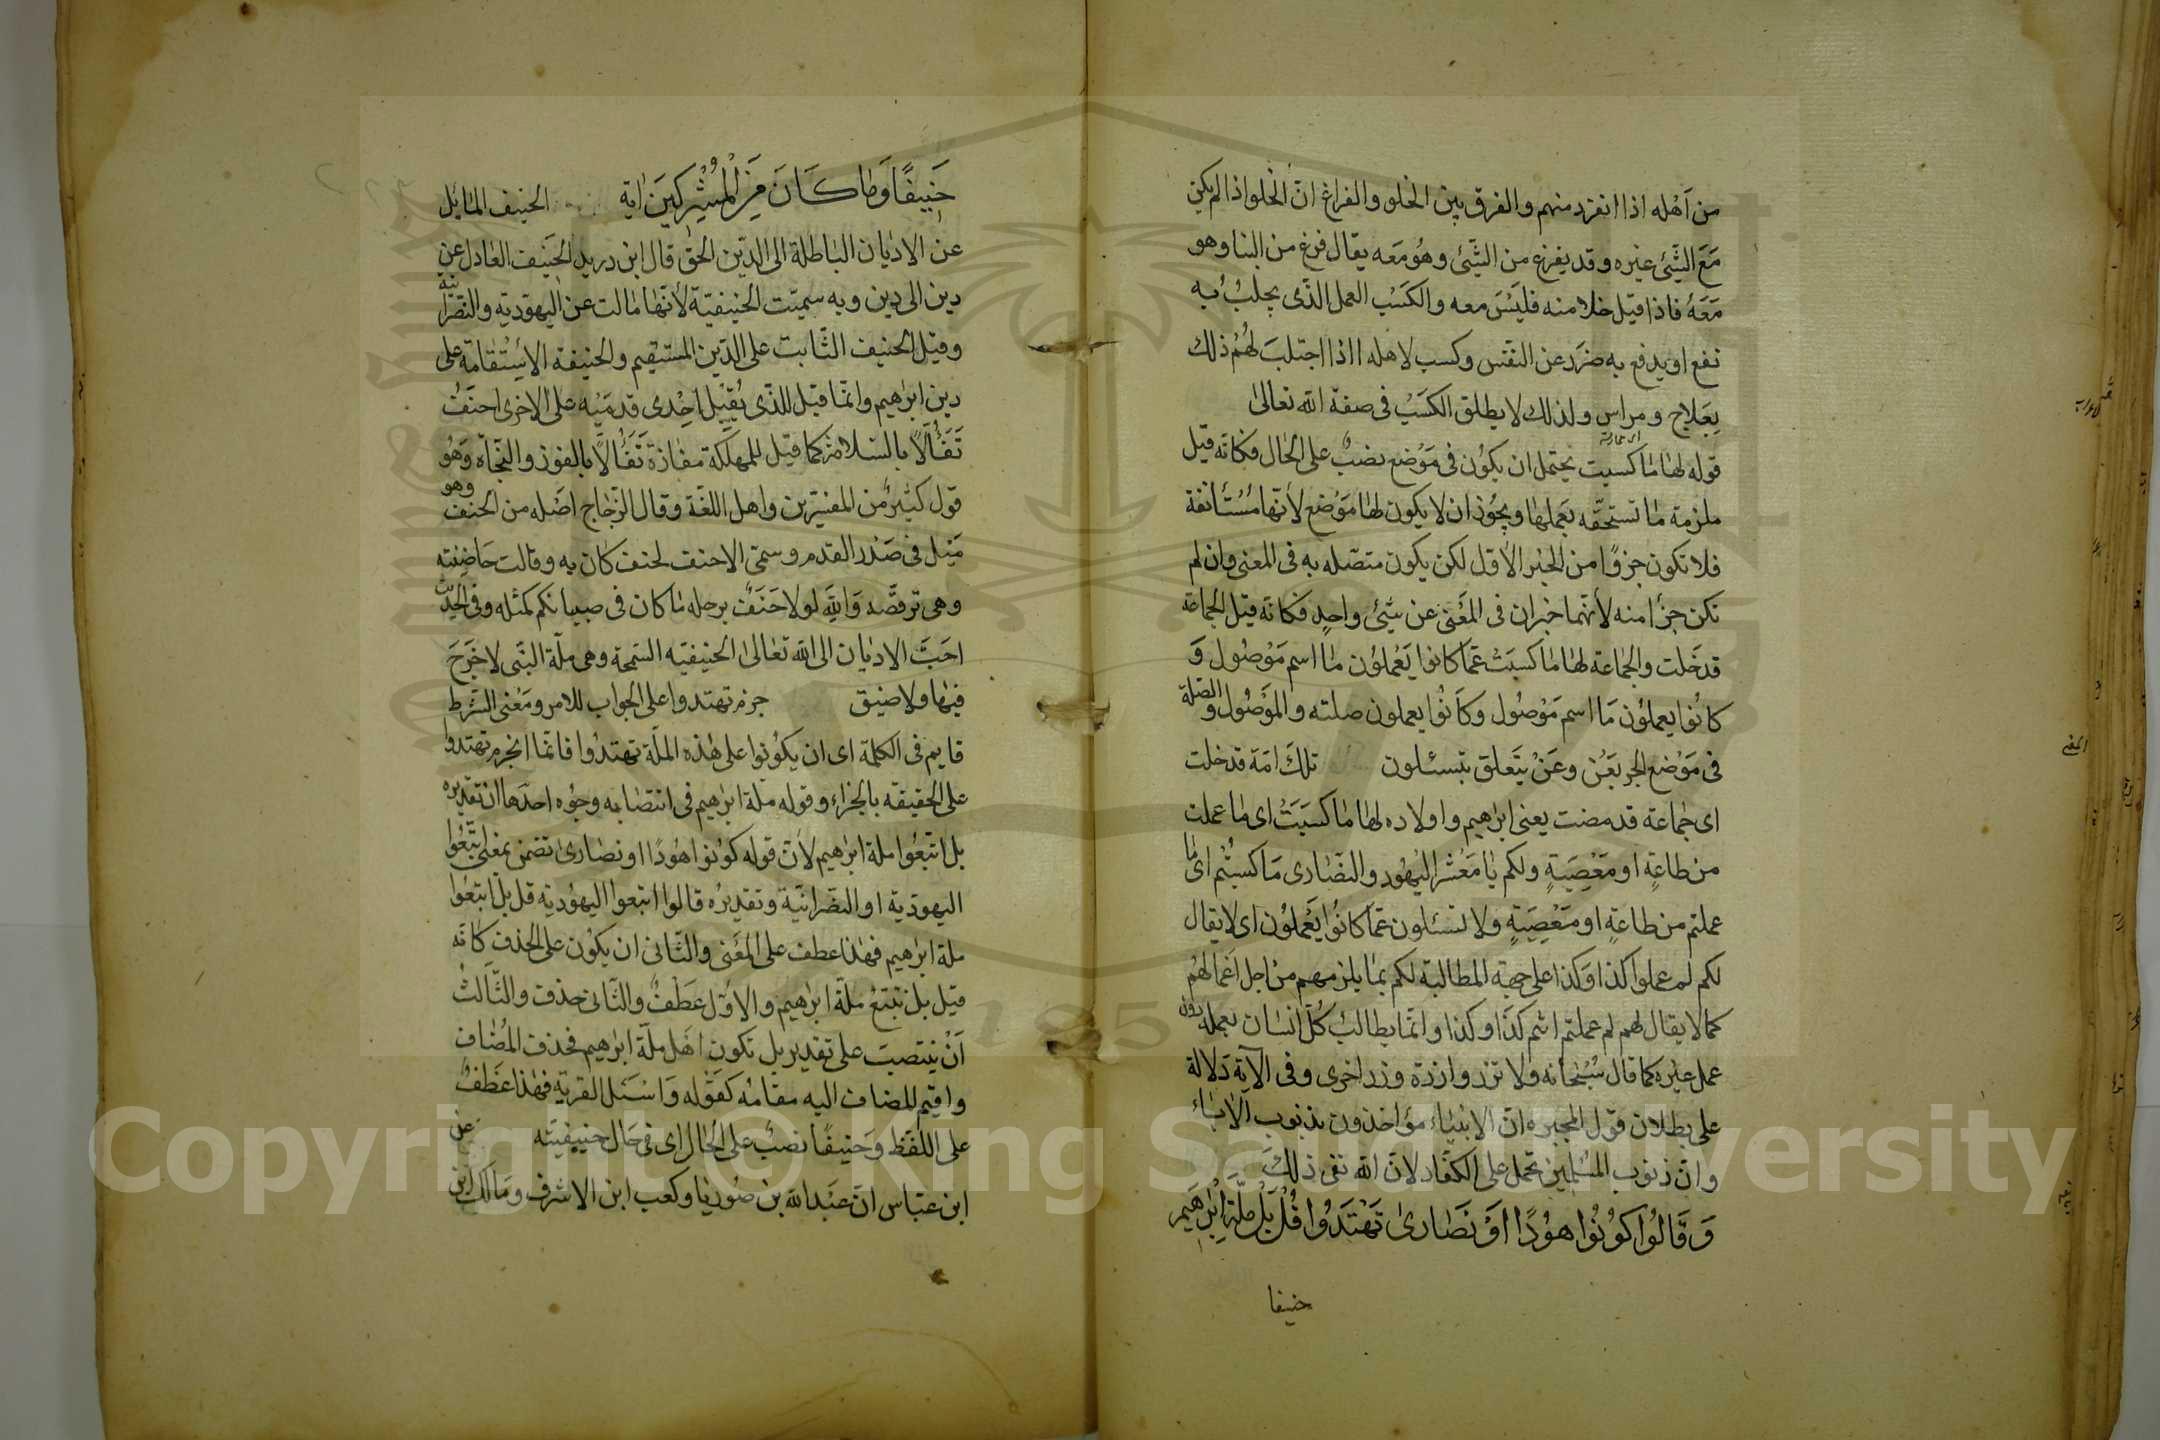 من اهله اذا انفرد منهم والفرق بين الخلو والفراغ انّ الخلو اذا لم يكن
مَعَ الشّيئ غيره وقد يفرغ من الشّيئ وهُو مَعه يقال فرغ من البنا وهو
مَعَهُ فاذا قيل خلا منه فليَسْ معه والكَسْب العمل الذّى يجلبُ به
نفع او يدفع به ضرَر عن النفس وكسب لاهله اذا اجتلبَ لهُم ذلك
بِعَلاج ومراس ولذلك لا يطلق الكَسْب فى صفة الله تعالىٰ
قوله لها ما كسبت يحتمل ان يكوُن فى مَوْضع نصبٌ على الحٰال فكانّه قيل
ملزمة مٰا تستحقّه بعَملهٰا ويجُوز ان لا يكون لها مَوْضع لأنّها مُسْتأنفة
فلا تكون جزوًا من الخبر الاوّل لكن يكون متصّله به فى المعنى وان لم
تكن جزأ منه لأنّهما خبران فى المعْنى عن شيئ واحدٍ فكانّه قيل الجماعة
قد خَلت والجمٰاعة لهٰا مٰا كسبَتْ عمّا كانوا يَعْملوُن مٰا اسم مَوْصُول وَ
كانُوا يعملوُن مَا اسم مَوْصُول وكاَنُوا يعملون صلته والموَصُول والصّلة
فى مَوْضع الجر بعَنْ وعَنْ يتَعلق بتسئلون تلكَ امّة قد خلت
اى جمٰاعة قد مضت يعنى ابرٰاهيم واولاده لهٰا مٰا كسَبَتْ اى مٰا عملت
من طاعةٍ او مَعْصِيَةٍ ولكم يٰا مَعْشر اليَهُود والنصّٰارى مَا كسبتُم اى مٰا
عملتم من طاعةٍ او مَعْصِيَةٍ ولا تسئلون عمّا كانُوا يَعْملوُن اى لا يقال
لكم لم عملوا كذا وكذا على جهة المطالبة لكم بمٰا يلزمهم من اجل اعْمالهُم
كما لا يقال لهم لم عملتم انتم كذا وكذا وانّما يطالبُ كُلّ انسٰان بعمله دون
عمل غيره كما قال سُبْحٰانه ولا تزر وازرة وزر اخرى وفى الآية دَلالة
على بطلان قول المجبره انّ الابنٰاء مؤاخذون بذنوب الآبٰاء
وانّ ذنوب المسُلمين تحمل على الكفّار لانّ الله نفى ذلكَ
وَقَالُوا كوُنُوا هوُدًا اوَْ نَصَارىٰ تَهْتَدُوا قُلْ بَلْ مِلَّةَ اِبْرٰهٖيمَ
حنيفا
حَنِيفًا وَمٰا كَانَ مِنَ الْمُشْرِكِينَ اٰية الحنيف المٰائل
عن الاديٰان البٰاطلة الى الدّين الحق قال ابن دريد الحَنيف العٰادل عن
دين الى دين وبه سميّت الحنيفيّة لأنّهٰا مٰالت عن اليهوديّه والنصّرانيّة
وقيل الحنيف الثّابت على الدّين المستقيم والحنيفة الأسْتقٰامة على
دين ابرٰهيم وانّما قيل للذّى تُقبِل اِحْدى قدمَيْه على الاخرى احنَفُ
تَفَؤُّلًا بالسّلامة كما قيل للمهلكة مفٰازة تَفَؤُّلًا بالفوز والنّجٰاه وَهُو
قول كثيرٌ من المفسّرين واهل اللغّة وقال الزّجٰاج اصْله من الحنف وهو
مَيْل فى صَدْر القدم وسمّى الاحنف لحنف كان به وقالت حَاضِنته
وهى ترقصّه وَالله لولا حَنَفٌ برجله مٰا كان فى صبيانكم كمثله وفى الحديث
احَبّ الاديٰان الى الله تعالىٰ الحنيفيّه السّمحة وهى ملّة النبّى لا حَرَجَ
فيهٰا ولا ضيق جزم تهتدوا على الجواب للامر ومَعْنى الشّرط
قايم فى الكلمة اى ان يكوُنوا على هٰذه الملّة تهتدُوا فانّما انجزم تهتدوا
على الحقيقة بالجزاء وقوله ملّة ابرٰهيم فى انتصٰابه وجوُه احدهَا ان تقديره
بل اتبّعُوا ملة ابرٰهيم لأنّ قوله كوُنوا هوُدًا او نصٰارىٰ تضمن مَعْنى اتبّعُوا
اليهوديّة او النصّرانيّة وتقديرُه قالوا اتبعوا اليهوُديّه قل بل اتبّعوُا
ملة ابرٰهيم فهٰذا عطف على المعْنى والثّانى ان يكوُن على الحذف كانّه
قيل بل نتبّعُ ملّة ابرٰهيم والاوّل عطْفٌ والثّانى حذف والثّالثُ
اَنْ ينتصبَ على تقدير بل تكون اهْل ملّة ابرٰهيم فحذف المُضٰاف
واقيم المضاف اليه مقامُه كقوْله وَاسْئل القرية فهٰذا عَطفٌ
على اللّفظ وحَنيفًا نصبٌ على الحٰال اى فى حَال حنيفيّته عن
ابن عبّاس انّ عبْدالله بن صوُريا وكعب ابن الاشرف وَمٰالك ابن
Copyright © King Saud University